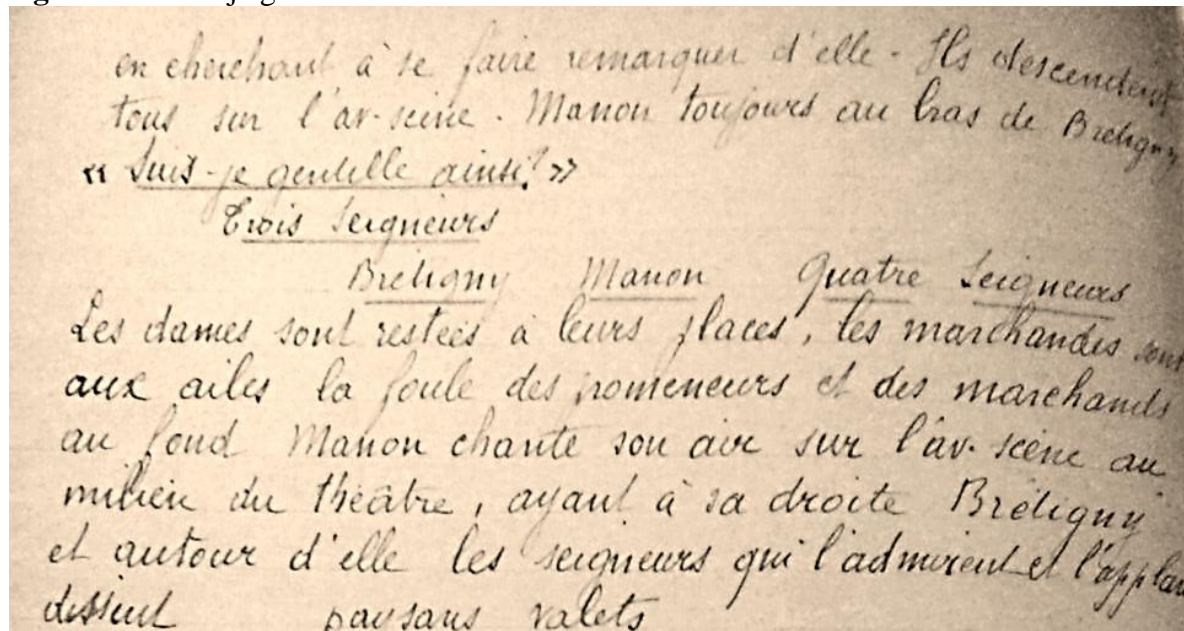 en cherchant à se faire remarquer d'elle - Ils descendent
tous sur l'av-scène. Manon toujours au bras de Bretigny
« Suis-je gentille ainsi? »
Trois Seigneurs
Bretigny Manon Quatre Seigneurs
Les dames sont restées à leurs places, les marchandes sont
aux ailes la foule des promeneurs et des marchands
au fond Manon chante son air sur l'av-scène au
milieu du théâtre, ayant à sa droite Brétigny
et autour d'elle les seigneurs qui l'admirent et l'applau
dissent paysans valets